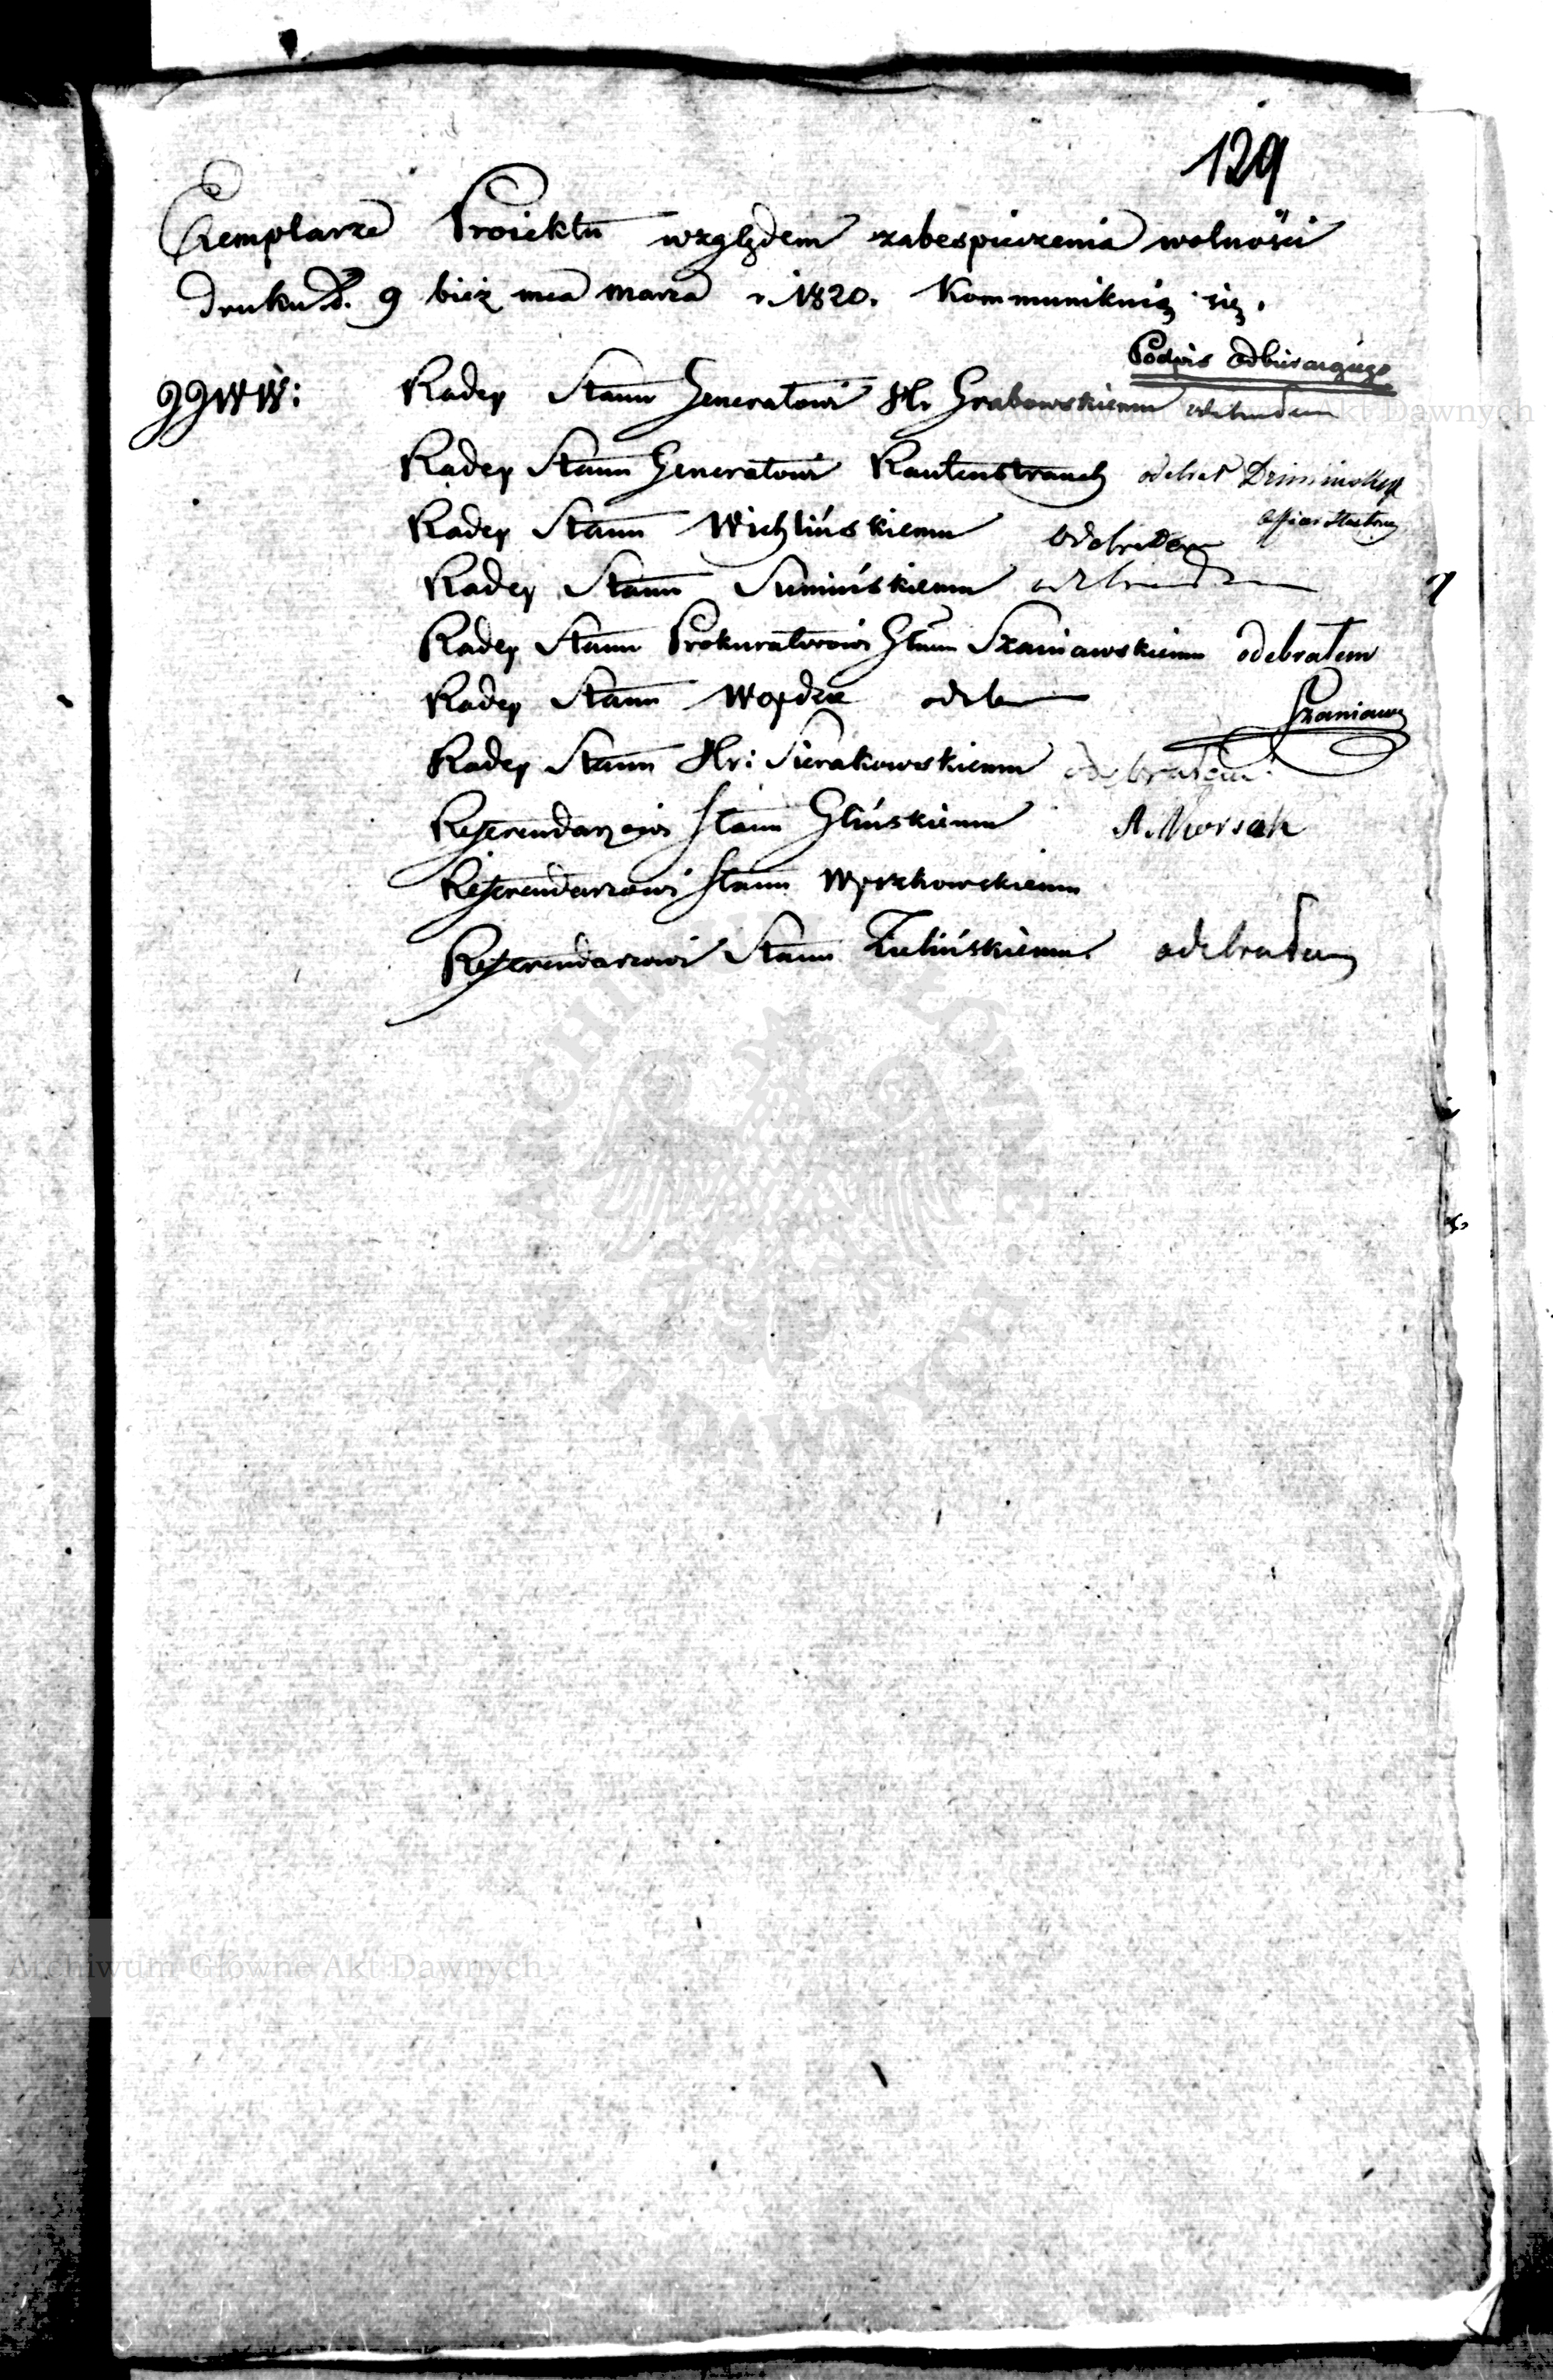 129
Exemplarze Proiektu względem zabespieczenia wolności
druku d. 9 bież mca marca r. 1820. Kommunikuią się.
Podpis odbieraiącego
JJWW: Radcy Stanu Generałowi Hr. Grabowskiemu odebrałem
Radcy Stanu Generałowi Rautenstrauch odebrał
Radcy Stanu Wichlińskiemu odebrałem
Radcy Stanu Sumińskiemu
Radcy Stanu Prokuratorowi Głłu Szaniawskiemu odebrałem
Radcy Stanu Woydzie
Szaniawski
Radcy Stanu Hr: Sierakowskiemu odebrałem
Referendarzowi Stanu Glińskiemu
Referendarzowi Stanu Wyczechowskiemu
Referendarzowi Stanu Zielińskiemu odebrałem
ARCHIWUM GŁÓWNE AKT DAWNYCH
Archiwum Główne Akt Dawnych
Akt Dawnych